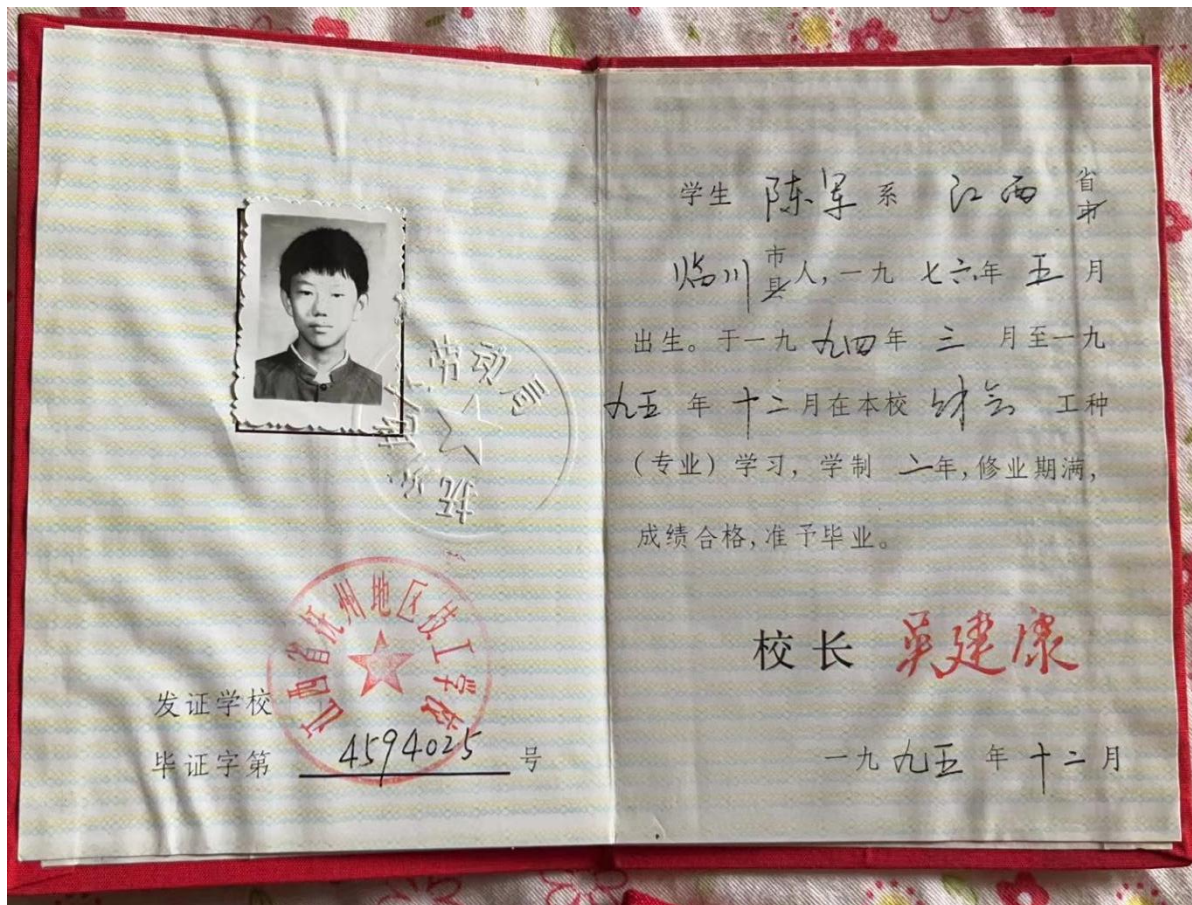 劳动局
江西省抚州地区技工学校
发证学校
毕证字第 4594025 号
学生 陈军 系 江西 省市
临川 市县 人，一九七六年 五 月
出生。于一九九四年 三 月至一九
九五 年 十二月在本校 财会 工种
（专业）学习，学制 二年，修业期满，
成绩合格，准予毕业。
校长 吴建康
一九九五 年 十二 月